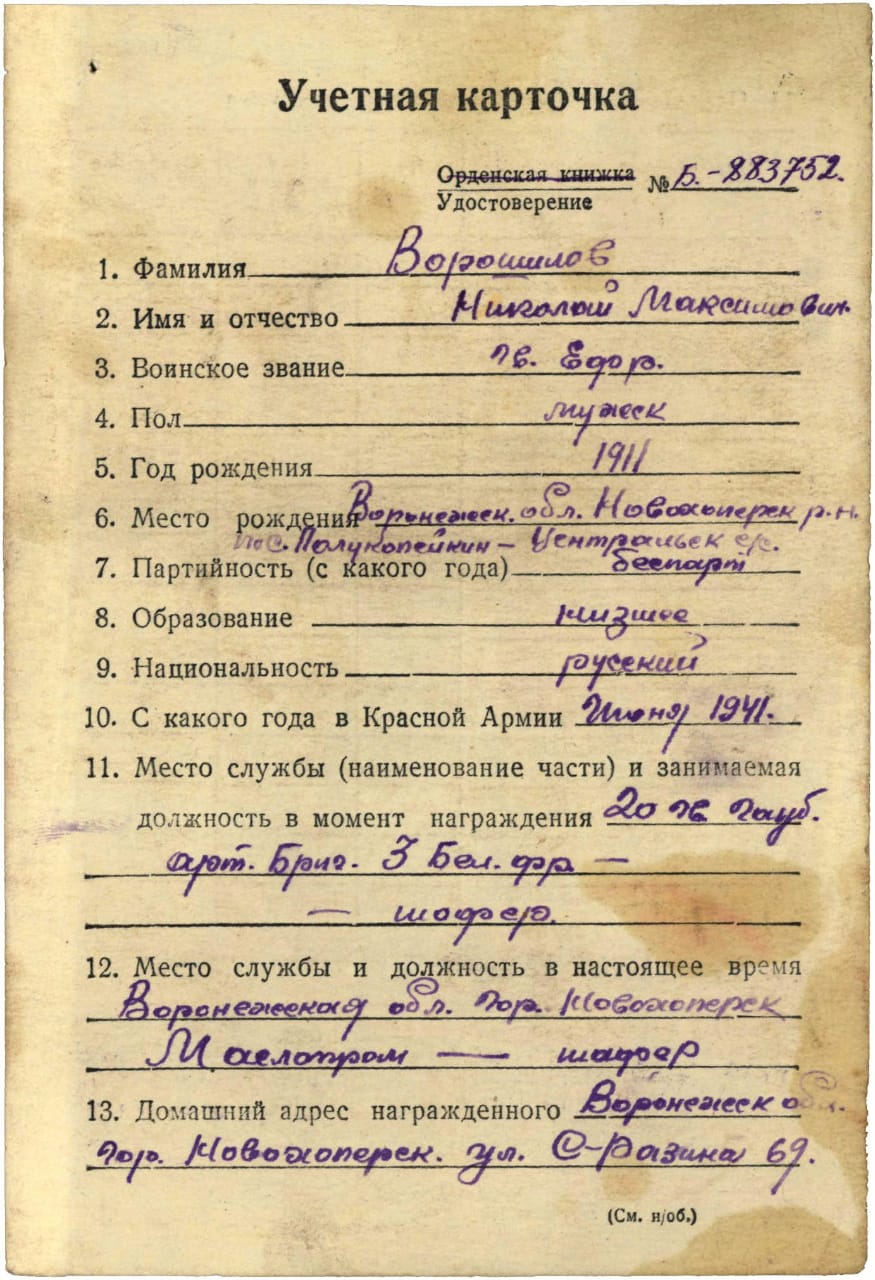 Учетная карточка
Орденская книжка № Б.-883752.
Удостоверение
1. Фамилия Ворошилов
2. Имя и отчество Николай Максимович
3. Воинское звание гв. Ефр.
4. Пол мужск
5. Год рождения 1911
6. Место рождения Воронежск. обл. Новохоперск р-н.
пос. Полукопейкин – Центральск с/с.
7. Партийность (с какого года) беспарт
8. Образование низшее
9. Национальность русский
10. С какого года в Красной Армии Июня 1941.
11. Место службы (наименование части) и занимаемая
должность в момент награждения 20 гв. гауб.
арт. Бриг. 3 Бел. фр –
– шофер.
12. Место службы и должность в настоящее время
Воронежская обл. гор. Новохоперск
Маслопром — шофер
13. Домашний адрес награжденного Воронежск обл.
гор. Новохоперск. ул. С-Разина 69.
(См. н/об.)